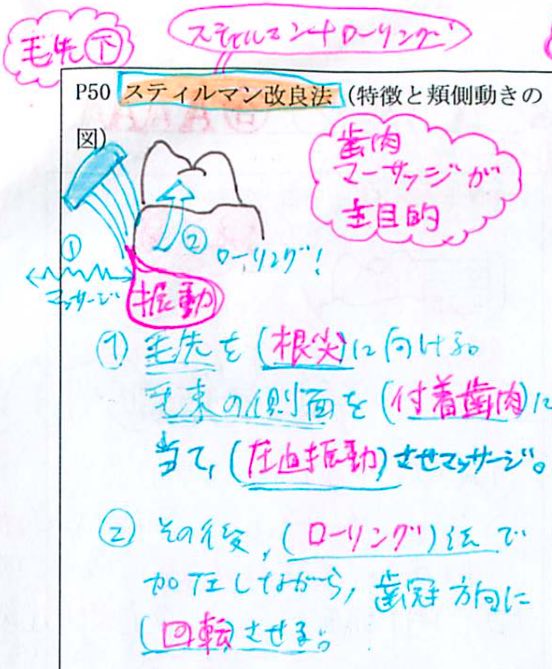 毛先下
スティルマン+ローリング
P50 スティルマン改良法 (特徴と頬側動きの
図)
歯肉
マーサッジが
主目的
①
マッサージ
②
ローリング!
振動
① 毛先を(根尖)に向ける。
毛束の側面を(付着歯肉)に
当て,(圧迫振動)させマッサージ。
② その後,(ローリング)法で
加圧しながら,歯冠方向に
(回転)させる。